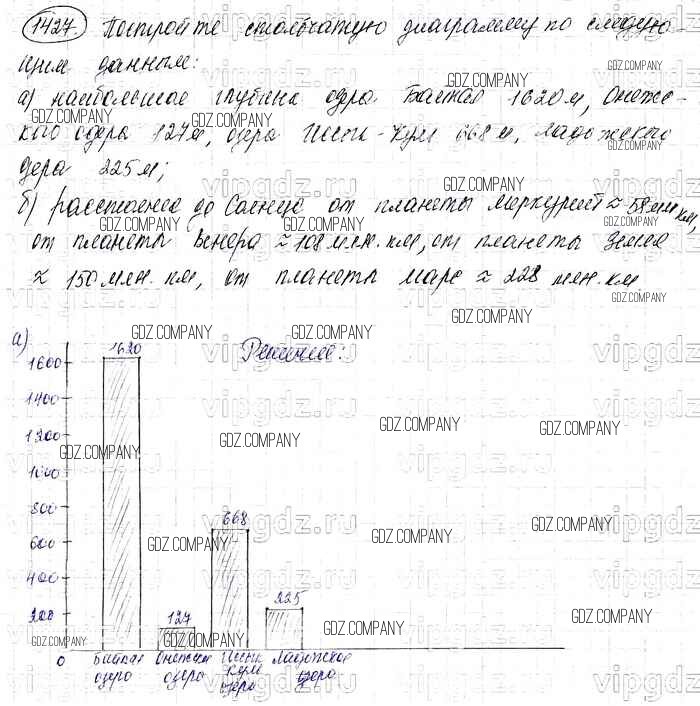 1427. Постройте столбчатую диаграмму по следую-
щим данным:
GDZ.COMPANY
а) наибольшая глубина озера Байкал 1620 м, Онежс-
кого озера 127 м, озера Иссык-Кум 668 м, Ладожского
озера 225 м;
б) расстояние до Солнца от планеты Меркурий ≈ 58 млн км,
от планеты Венера ≈ 108 млн. км, от планеты Земля
≈ 150 млн. км, от планеты Марс ≈ 228 млн. км
vipgdz.ru
GDZ.COMPANY
а) Решение:
1620
1600
1400
1200
1000
800
668
600
400
225
200
127
0
Байкал Онежское Иссык Ладожское
озеро озеро Кум озеро
озеро